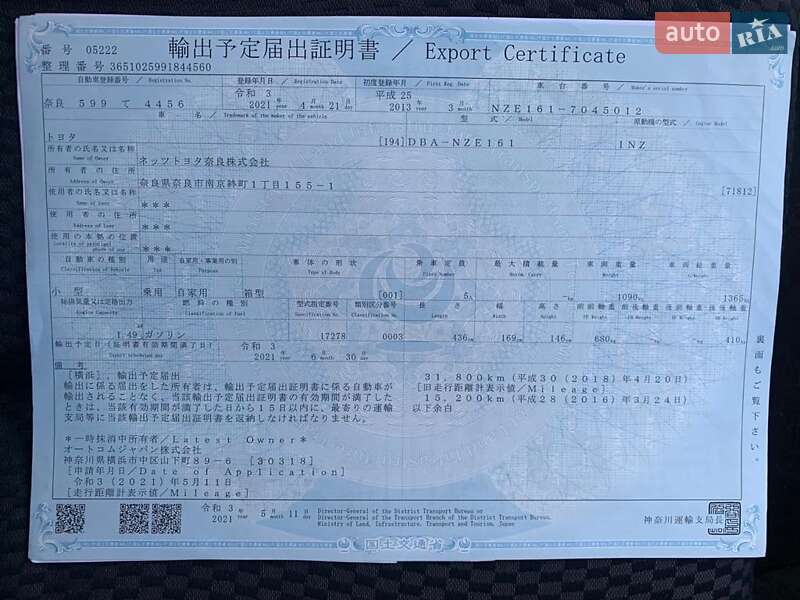 auto RIA .com
番 号 05222
輸出予定届出証明書 / Export Certificate
整理番号 3651025991844560
自動車登録番号 / Registration No.
登録年月日 / Registration Date
初度登録年月 / First Reg. Date
車 台 番 号 / Maker's serial number
奈良 599 て 4456
令和 3
2021 年 year 4 月 month 21 日 day
平成 25
2013 年 year 3 月 month
NZE161-7045012
車 名 / Trademark of the maker of the vehicle
型 式 / Model
原動機の型式 / Engine Model
トヨタ
[194] DBA-NZE161
1NZ
所有者の氏名又は名称 Name of Owner
ネッツトヨタ奈良株式会社
所有者の住所 Address of Owner
奈良県奈良市南京終町1丁目155-1
[71812]
使用者の氏名又は名称 Name of User
***
使用者の住所 Address of User
***
使用の本拠の位置
***
自動車の種別 Classification of Vehicle
用途 Use
自家用・事業用の別 Purpose
車体の形状 Type of Body
乗車定員
最大積載量
車両重量 Weight
車両総重量
小型
乗用
自家用
箱型
[001]
5人
-kg
1090kg
1365kg
総排気量又は定格出力 Engine Capacity
燃料の種別 Classification of Fuel
型式指定番号 Specification No.
類別区分番号 Classification No.
長さ Length
幅 Width
高さ Height
前前軸重 FF Weight
前後軸重 FR Weight
後前軸重 RF Weight
後後軸重 RR Weight
1.49 ガソリン
17278
0003
436cm
169cm
146cm
680kg
-kg
-kg
410kg
輸出予定日(証明書有効期間満了日)
Export scheduled day
令和 3
2021 年 year 6 月 month 30 日 day
備考
[横浜],輸出予定届出
輸出に係る届出をした所有者は、輸出予定届出証明書に係る自動車が
輸出されることなく、当該輸出予定届出証明書の有効期間が満了した
ときは、当該有効期間が満了した日から15日以内に、最寄りの運輸
支局等に当該輸出予定届出証明書を返納しなければなりません。
31,800km(平成30(2018)年4月20日)
[旧走行距離計表示値/Mileage]
15,200km(平成28(2016)年3月24日)
以下余白
*一時抹消中所有者/Latest Owner*
オートコムジャパン株式会社
神奈川県横浜市中区山下町89-6 [30318]
[申請年月日/Date of Application]
令和3(2021)年5月11日
[走行距離計表示値/Mileage]
裏面もご覧下さい。
令和 3
2021 年 year 5 月 month 11 日 day
Director-General of the District Transport Bureau or
Director-General of the Transport Branch of the District Transport Bureau,
Ministry of Land, Infrastructure, Transport and Tourism, Japan
神奈川運輸支局長
国土交通省